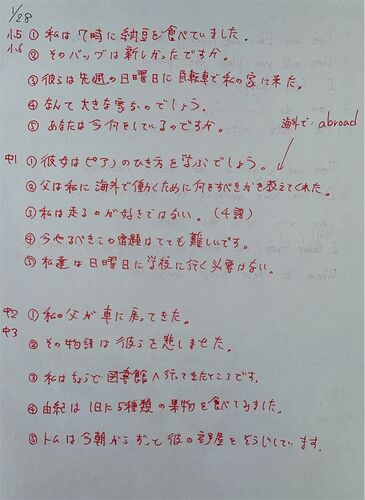 1/28
小5 ① 私は7時に納豆を食べていました。
小6 ② そのバッグは新しかったですか。
③ 彼らは先週の日曜日に自転車で私の家に来た。
④ なんて大きな家なのでしょう。
⑤ あなたは今何をしているのですか。
海外で：abroad
中1 ① 彼女はピアノのひき方を学ぶでしょう。
② 父は私に海外で働くために何をすべきかを教えてくれた。
③ 私は走るのが好きではない。(7語)
④ 今やるべきこの宿題はとても難しいです。
⑤ 私達は日曜日に学校に行く必要はない。
中2 ① 私の父が車に戻ってきた。
中3 ② その物語は彼らを悲しませた。
③ 私はちょうど図書館へ行ってきたところです。
④ 由紀は1日に5種類の果物を食べてみました。
⑤ トムは今朝からずっと彼の部屋をそうじしています。